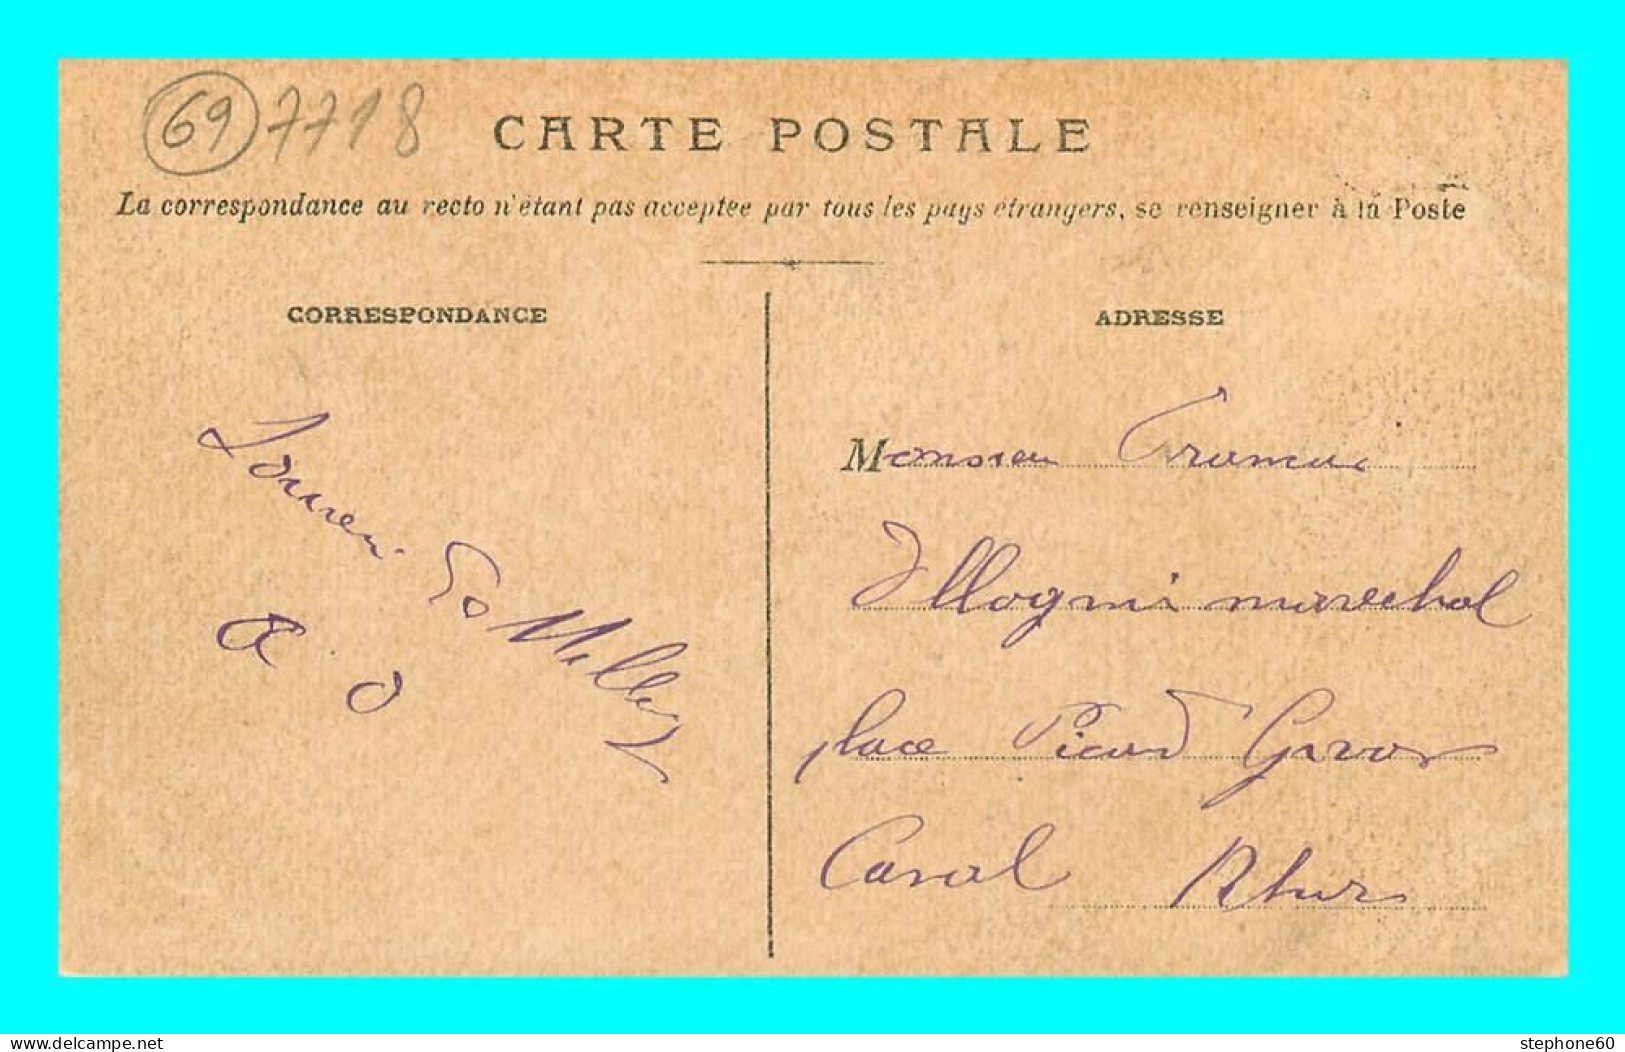 69 7718
CARTE POSTALE
La correspondance au recto n'étant pas acceptée par tous les pays étrangers, se renseigner à la Poste
CORRESPONDANCE
ADRESSE
Monsieu
marechal
place Picard Givors
Canal Rhone
www.delcampe.net
stephone60